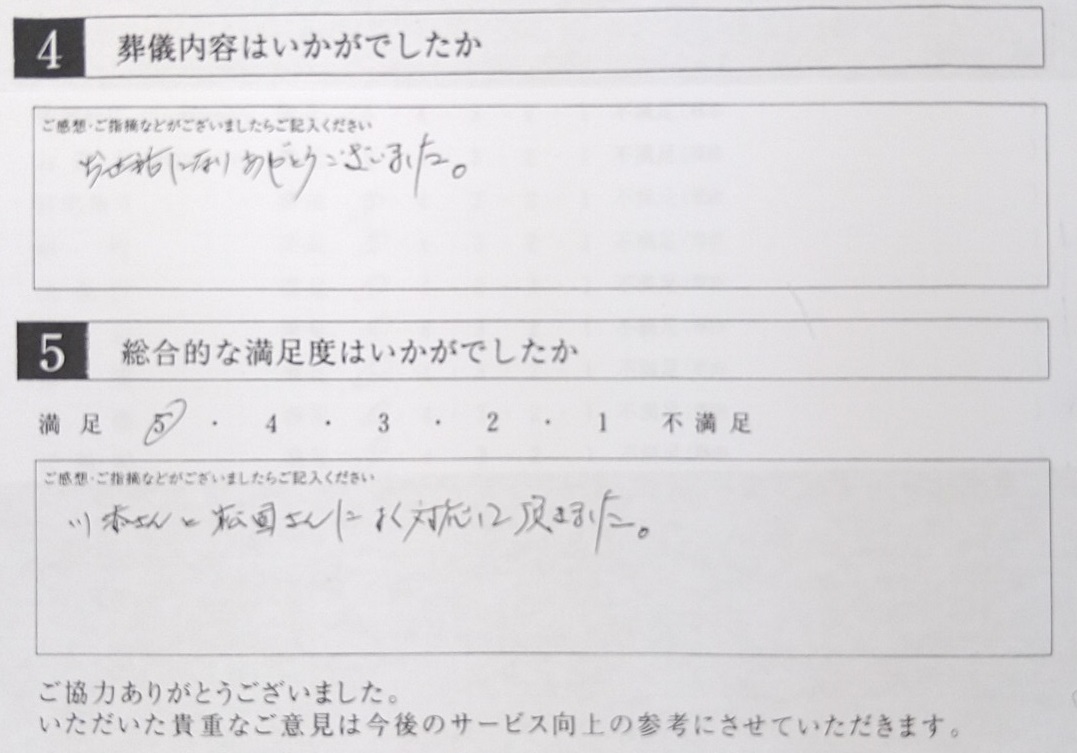 4 葬儀内容はいかがでしたか
ご感想・ご指摘などがございましたらご記入ください
お世話になりありがとうございました。
5 総合的な満足度はいかがでしたか
満足 5 ・ 4 ・ 3 ・ 2 ・ 1 不満足
ご感想・ご指摘などがございましたらご記入ください
川本さんと松岡さんによく対応して頂きました。
ご協力ありがとうございました。
いただいた貴重なご意見は今後のサービス向上の参考にさせていただきます。